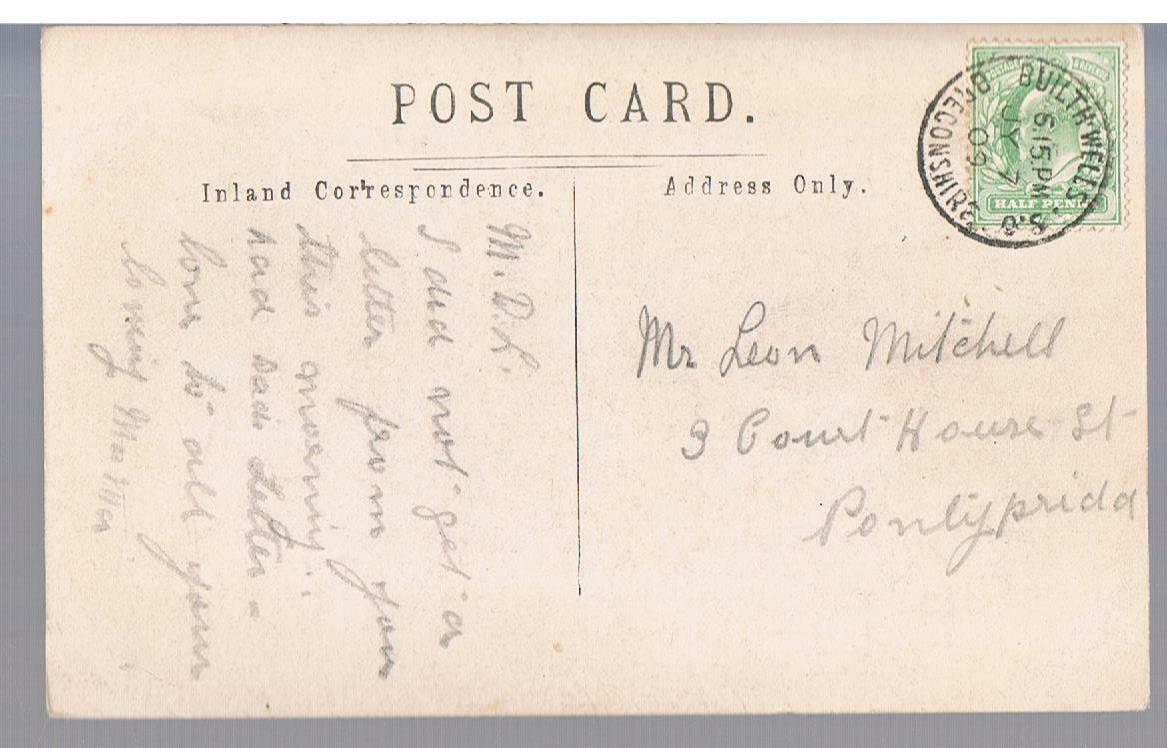 POST CARD.
Inland Correspondence.
Address Only.
BUILTH WELLS. S.O
BRECONSHIRE
6.15 PM
JY 7
09
HALF PENNY
M. D. L.
I did not get a
letter from you
this morning.
had Dads Letter.
love to all your
loving
Mr Leon Mitchell
3 Court House St
Pontypridd